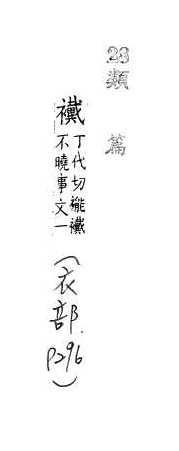 23
類篇
襶
丁代切褦襶
不曉事文一
(衣部.
P296)